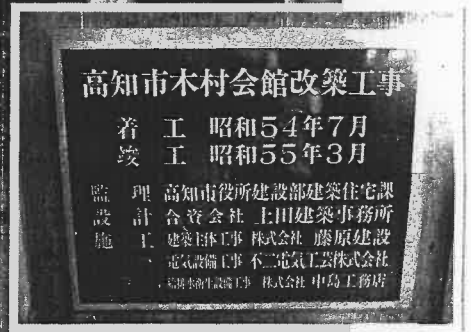 高知市木村会館改築工事
着工 昭和54年7月
竣工 昭和55年3月
監理 高知市役所建設部建築住宅課
設計 合資会社 上田建築事務所
施工 建築主体工事 株式会社 藤原建設
電気設備工事 不二電気工芸株式会社
給排水衛生設備工事 株式会社 中島工務店